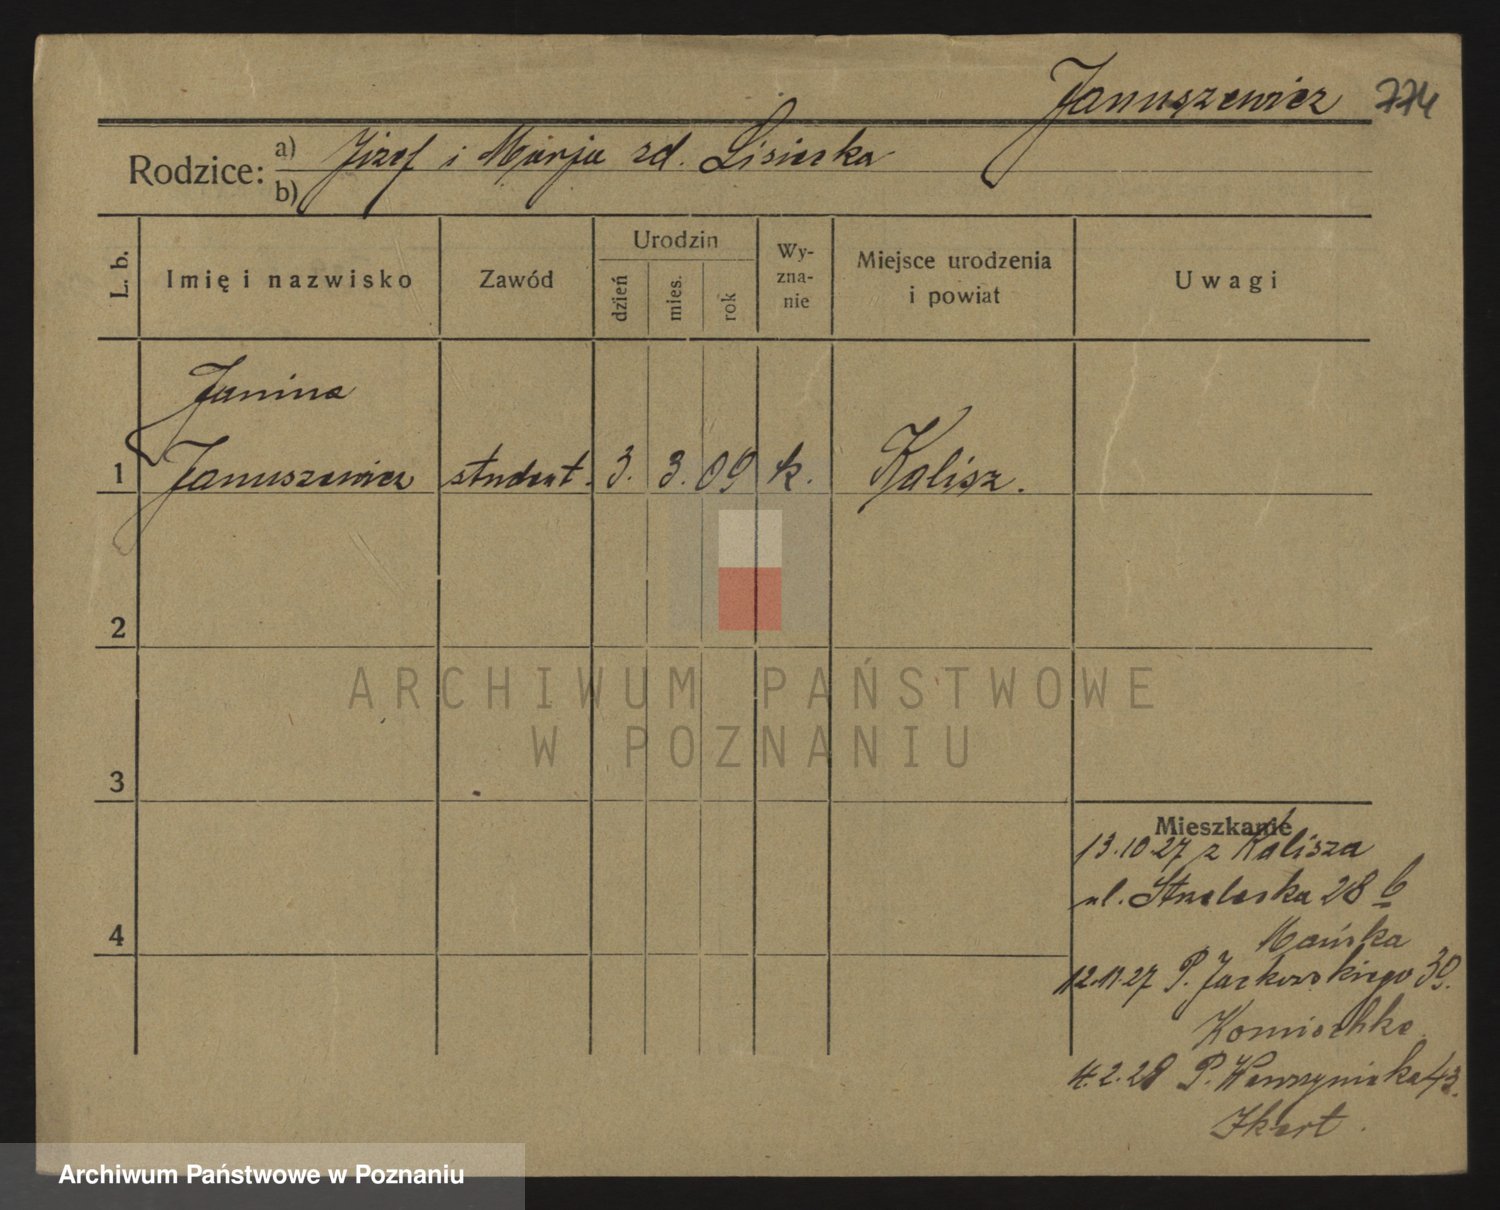 Januszewicz 774
Rodzice: a) Józef i Marja zd. Lisiecka
b)
L. b. Imię i nazwisko Zawód Urodzin dzień mies. rok Wy-zna-nie Miejsce urodzenia i powiat Uwagi
Janina
1 Januszewicz student. 3. 3. 09 k. Kalisz.
2
3
4
Mieszkanie
13.10.27 z Kalisza
ul. Strzelecka 28 b
Mańska
12.11.27 P. Jackowskiego 39.
Komischke
4.2.28 P. Wawrzyniaka 43.
Ikert.
ARCHIWUM PAŃSTWOWE
W POZNANIU
Archiwum Państwowe w Poznaniu